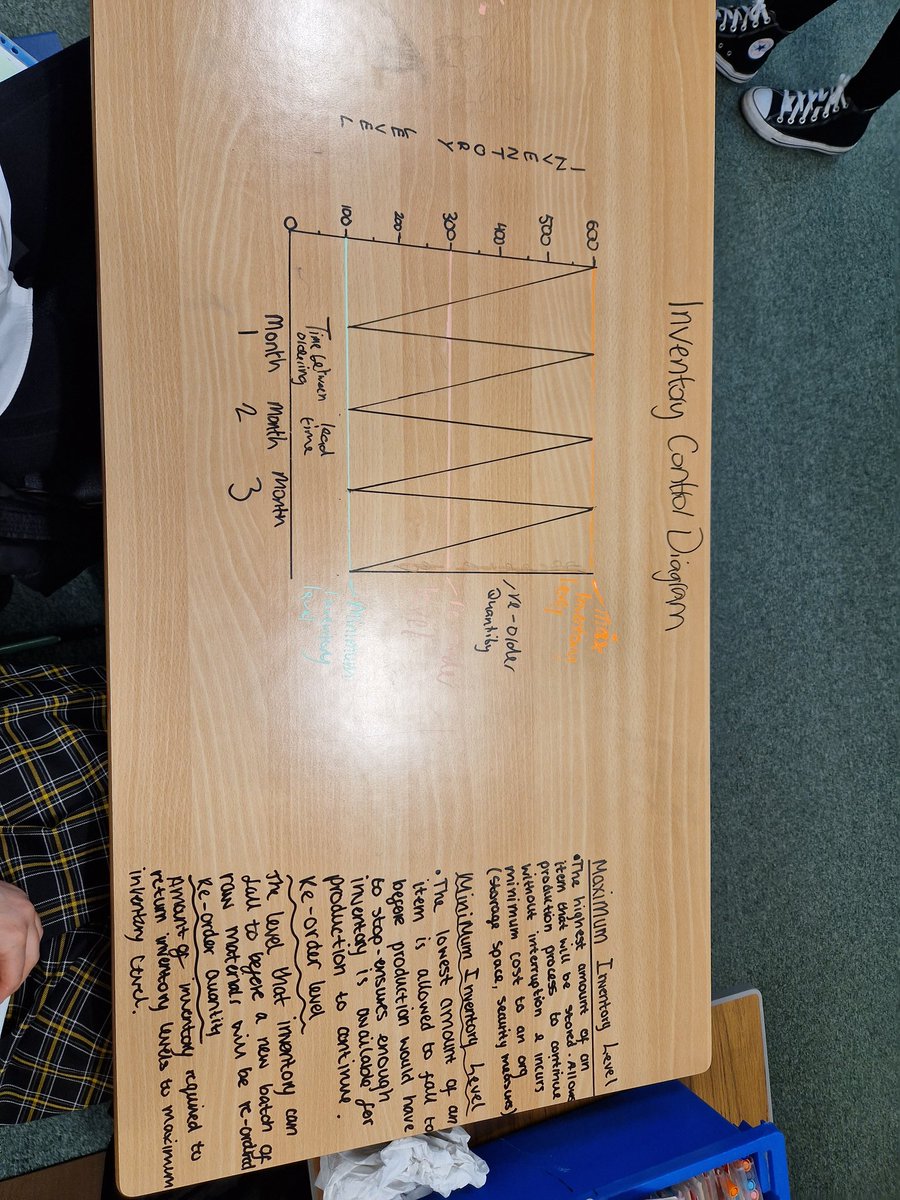 Inventory Control Diagram
INVENTORY
LEVEL
600
500
400
300
200
100
0
Time between
ordering
lead
time
Month
1
Month
2
Month
3
Max
Inventory
Level
re-order
Quantity
Minimum
Inventory
Level
Maximum Inventory Level
• The highest amount of an
item that will be stored. Allows
production process to continue
without interruption & incurs
minimum cost to an org
(storage space, security measures)
Minimum Inventory Level
• The lowest amount of an
item is allowed to fall to
before production would have
to stop-ensures enough
inventory is available for
production to continue.
Re-order level
The level that inventory can
fall to before a new batch of
raw materials will be re-ordered
Re-order quantity
Amount of inventory required to
return inventory levels to maximum
inventory level.